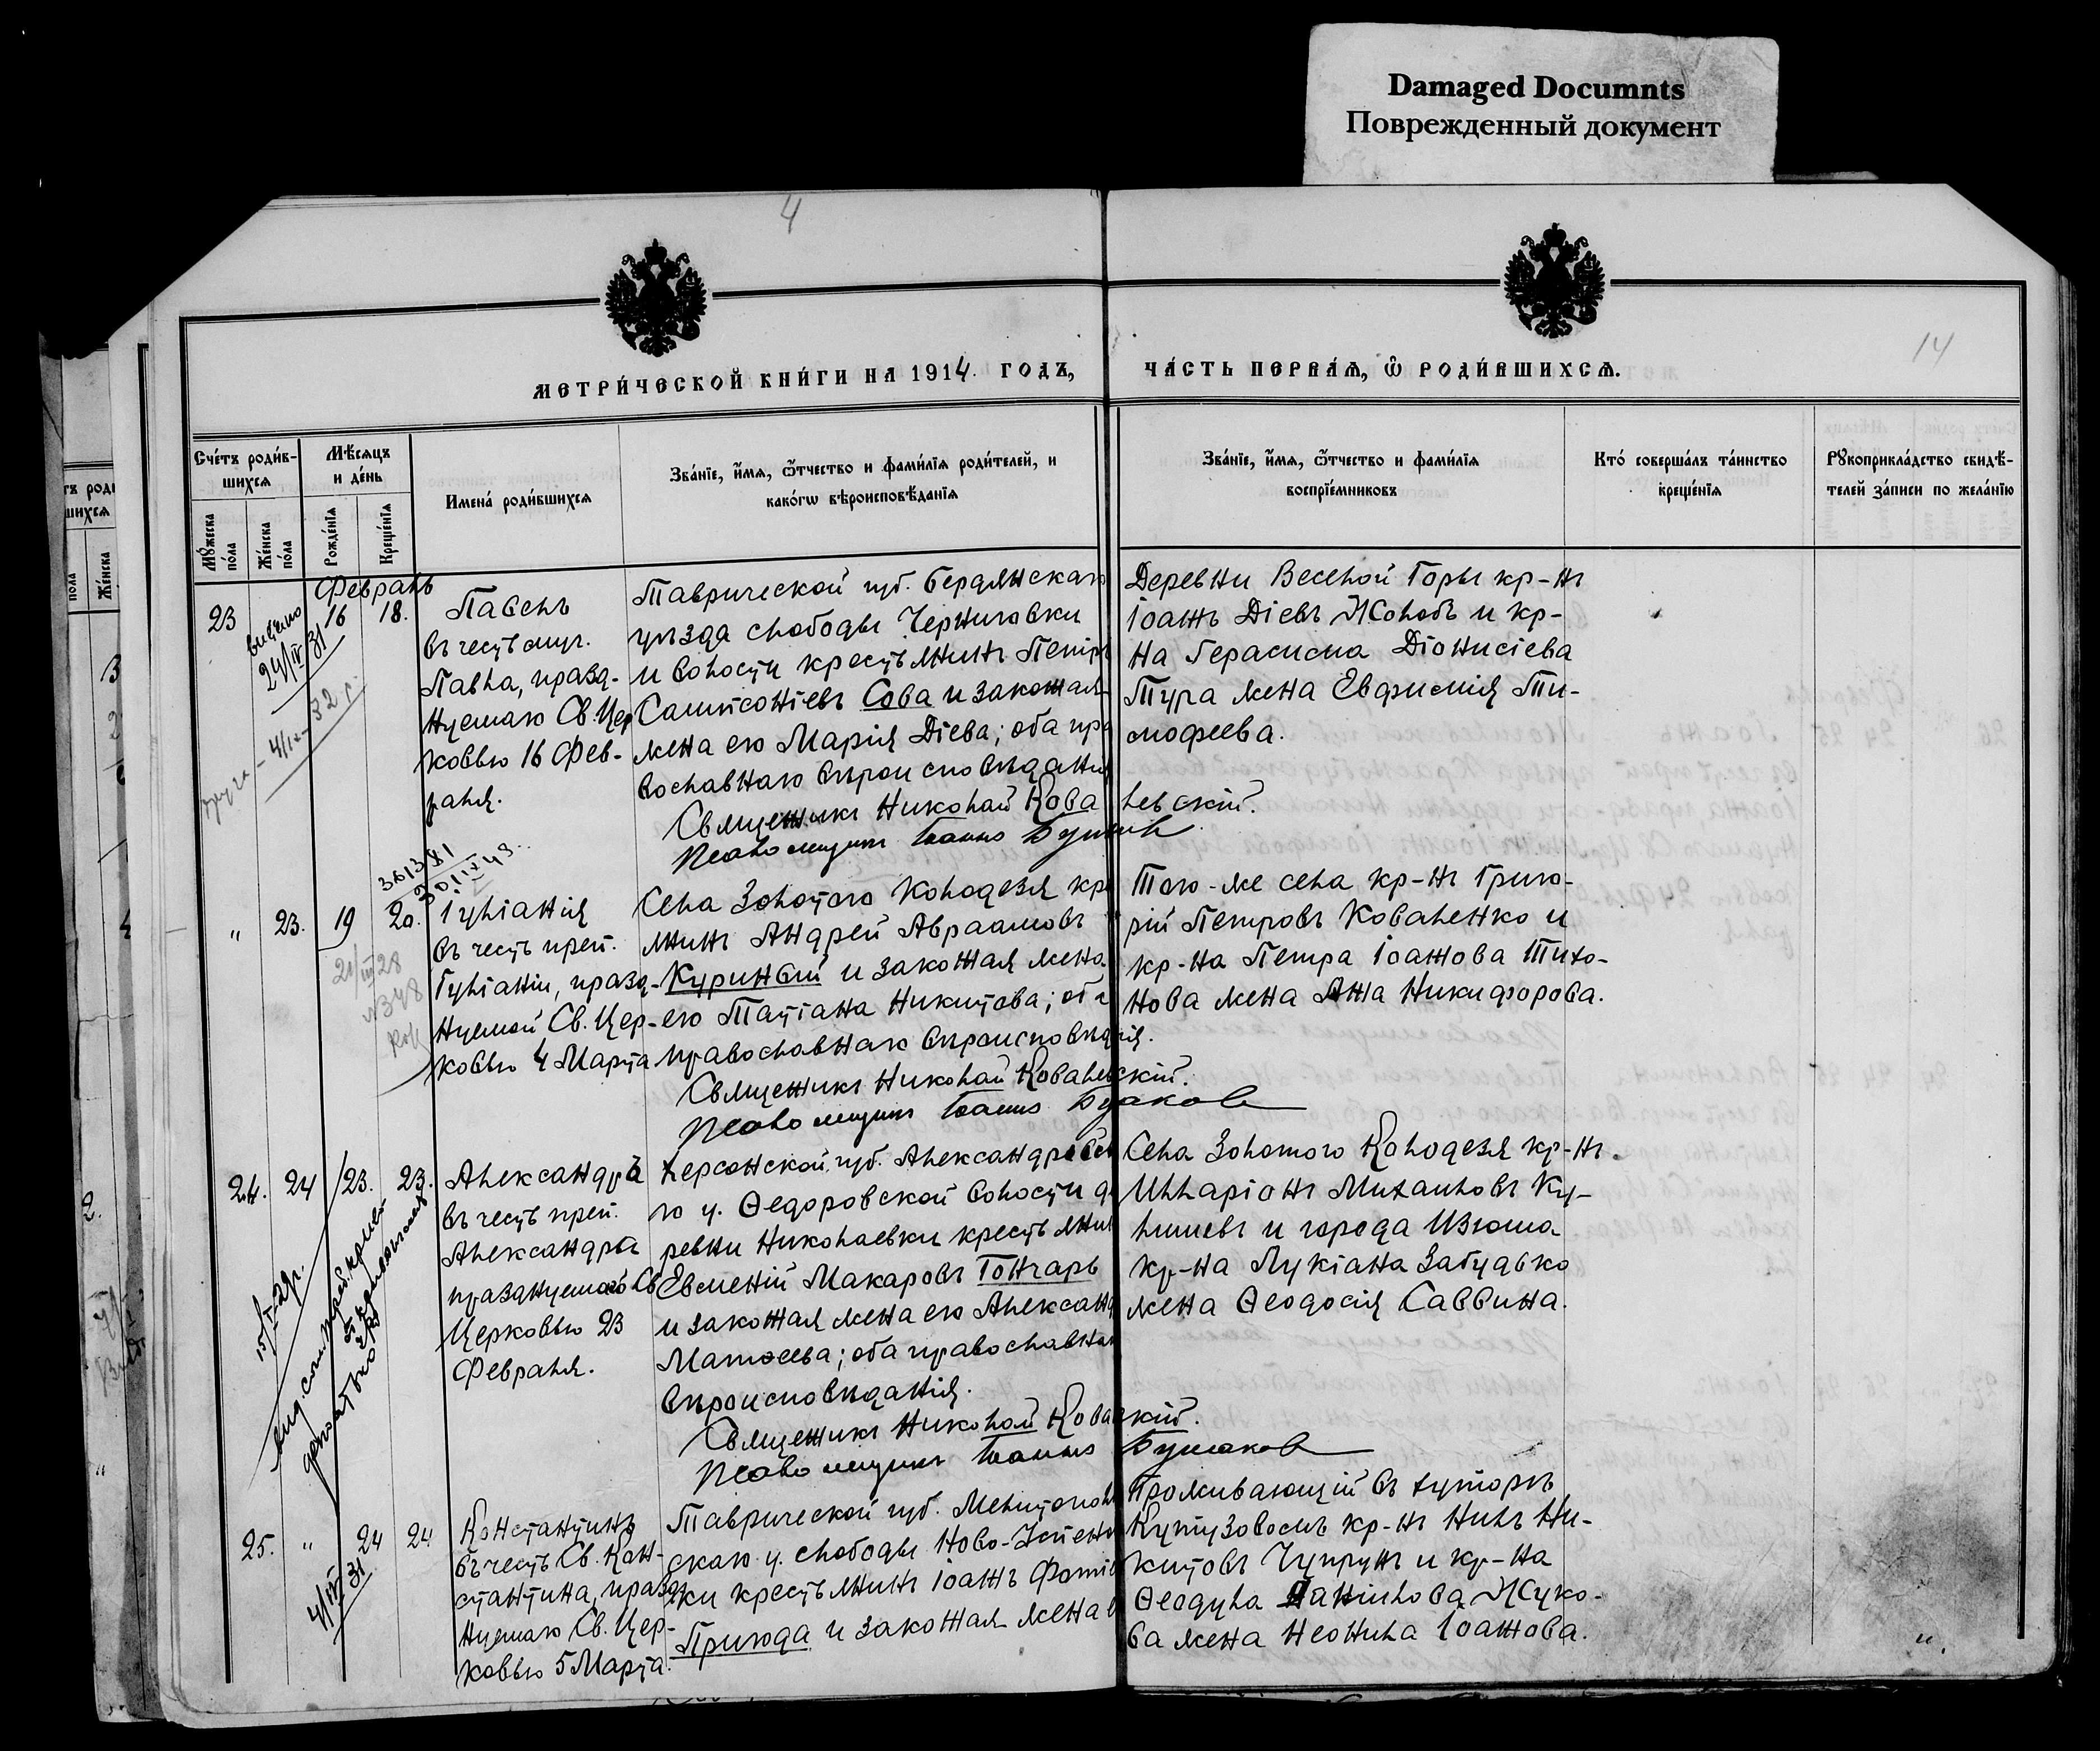 Damaged Documnts
Поврежденный документ
4
14
МЕТРИ́ЧЕСКОЙ КНИ́ГИ НА 1914. ГОДЪ,
ЧА́СТЬ ПЕРВАѦ, Ѡ РОДИ́ВШИХСѦ.
Сче́тъ роди́в-
шихсѧ
Мꙋ́жеска по́ла
Же́нска по́ла
Мѣ́сѧцъ
и де́нь
Рожде́нїѧ
Креще́нїѧ
Имена́ роди́вшихсѧ
Зва́нїе, и́мѧ, ѻ́тчество и фами́лїѧ роди́телей, и
како́гѡ вѣроисповѣ́данїѧ
Зва́нїе, и́мѧ, ѻ́тчество и фами́лїѧ
воспрїе́мниковъ
Кто́ соверша́лъ та́инство
креще́нїѧ
Рꙋкоприкла́дство свидѣ́-
телей за́писи по жела́нїю
Февраль
23
16
18.
24/IV 31
4/IX- 32 г.
Павелъ
въ честь муч.
Павла, празд-
нуемаго Св. Цер
ковью 16 Фев-
раля.
Таврической губ. Бердянскаго
уѣзда слободы Черниговки
и волости крестьянинъ Петръ
Сампсоніевъ Сова и законная
жена его Марія Діева; оба пра
вославнаго вѣроисповѣданія
Священникъ Николай Ковалевскій.
Псаломщикъ Іоаннъ
Деревни Веселой Горы кр-нъ
Іоаннъ Діевъ Жолобъ и кр-
на Герасима Діонисіева
Тура жена Евфимія Ти-
мофеева.
"
23.
19
20.
21/III 28
№348
Іуліанія
въ честь преп.
Іуліаніи, празд-
нуемой Св. Цер-
ковью 4 Марта
Села Золотого Колодезя кре
янинъ Андрей Авраамовъ
Куриный и законная жена
его Татіана Никитова; оба
православнаго вѣроисповѣданія.
Священникъ Николай Ковалевскій.
Псаломщикъ Іоаннъ
Того-же села кр-нъ Григо-
рій Петровъ Коваленко и
кр-на Петра Іоаннова Тихо-
нова жена Анна Никифорова.
24.
24
23.
23.
Александра
въ честь преп.
Александра
празднуемаго Св.
Церковью 23
Февраля.
Херсонской губ. Александрійска
го у. Ѳедоровской волости де
ревни Николаевки крестьянинъ
Евмений Макаровъ Гончаръ
и законная жена его Александра
Матѳеева; оба православнаго
вѣроисповѣданія.
Священникъ Николай Ковалевскій.
Псаломщикъ Іоаннъ
Села Золотого Колодезя кр-нъ
Илларіонъ Михаиловъ Ку-
лишевъ и города Изюма
кр-на Лукіана Забудько
жена Ѳеодосія Саввина.
25.
"
24
24
4/IV 31
Константинъ
въ честь Св. Кон-
стантина, празд-
нуемаго Св. Цер-
ковью 5 Марта.
Таврической губ. Мелитополь
скаго у. слободы Ново-Успенов
ки крестьянинъ Іоаннъ Фотіев
Пригода и законная жена е
Проживающій въ хуторѣ
Кутузовомъ кр-нъ Нилъ Ни-
китовъ Чупрунъ и кр-на
Ѳеодула Даніилова Жуко-
ва жена Неонила Іоаннова.